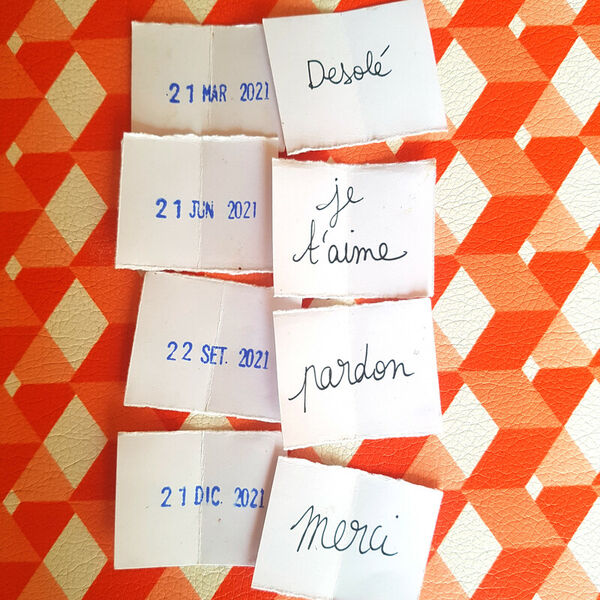 21 MAR 2021
Desolé
21 JUN 2021
je
t'aime
22 SET. 2021
pardon
21 DIC. 2021
Merci